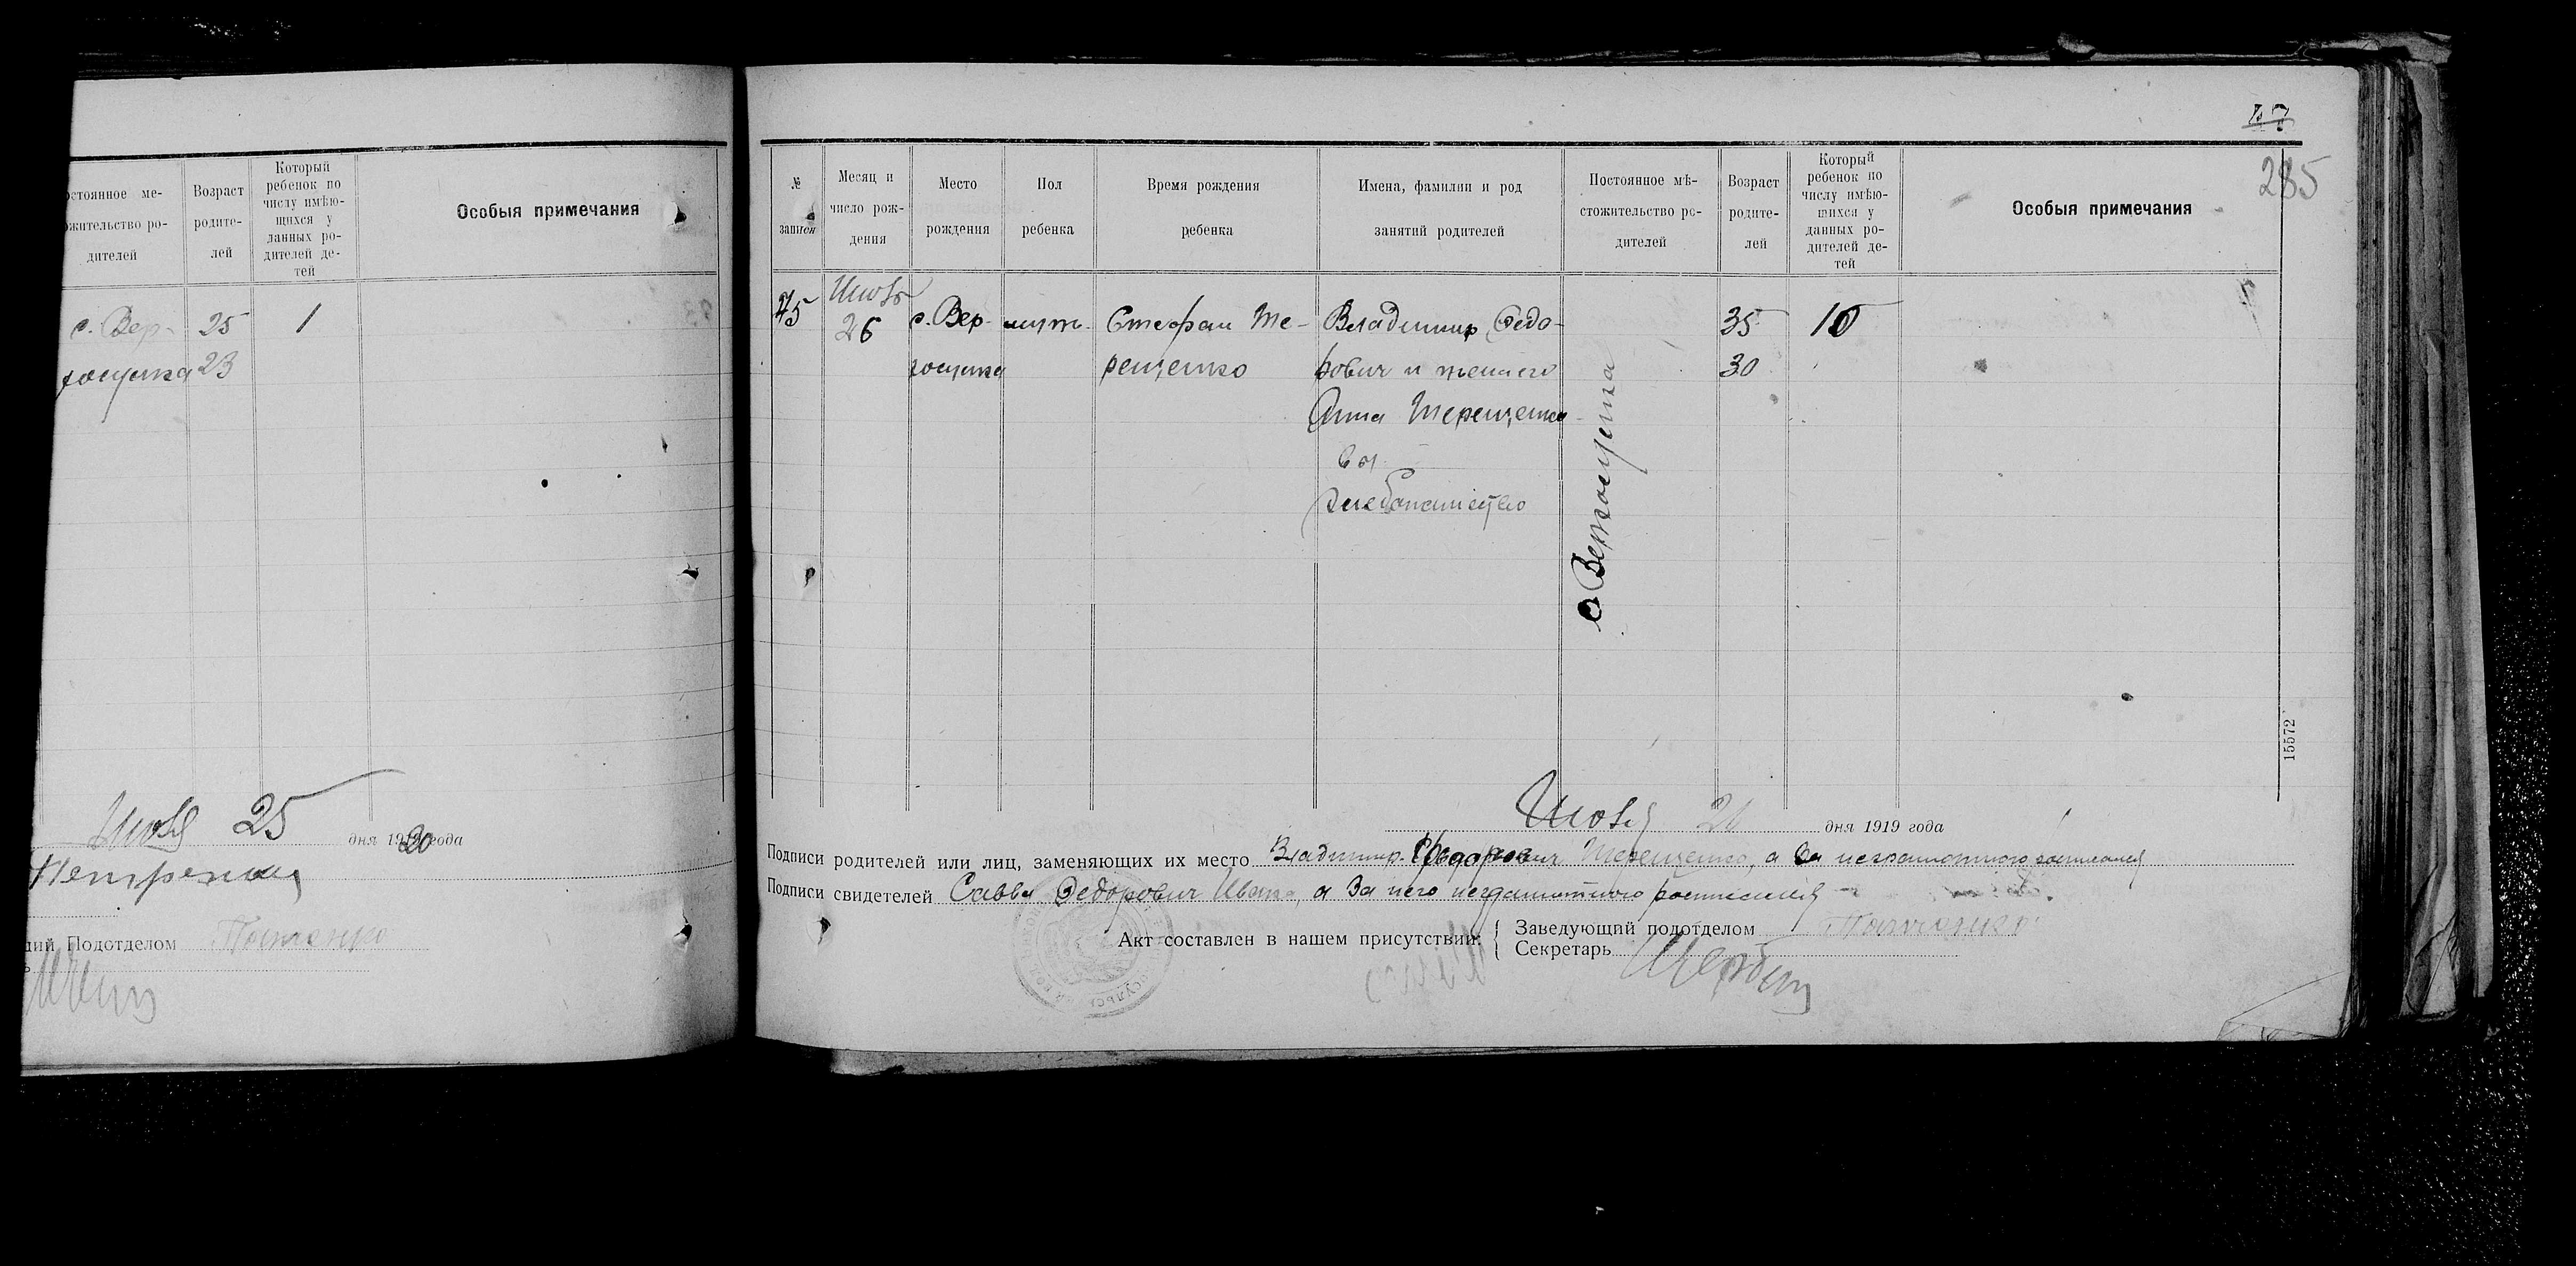 остоянное ме-
ожительство ро-
дителей
Возраст
родите-
лей
Который
ребенок по
числу имѣю-
щихся у
данных ро-
дителей де-
тей
Особыя примечания
с. Вер-
25
1
23
Июля 25 дня 1920 года
Петренко
щий Подотделом
47
285
№
записи
Месяц и
число рож-
дения
Место
рождения
Пол
ребенка
Время рождения
ребенка
Имена, фамилии и род
занятий родителей
Постоянное мѣ-
стожительство ро-
дителей
Возраст
родите-
лей
Который
ребенок по
числу имѣю-
щихся у
данных ро-
дителей де-
тей
Особыя примечания
45
Июля
26
с. Вер-
муж.
Стефан Те-
рещенко
Владимир Федо-
рович и жена его
Анна Терещенко-
вы
хлебопашество
35
30
10
15572
Июля дня 1919 года
Подписи родителей или лиц, заменяющих их место Владимир Федорович Терещенко, а за неграмотного росписался
Подписи свидетелей Савва Федорович Ивано, а за него неграмотного росписался
Акт составлен в нашем присутствии:
Заведующий подотделом
Секретарь